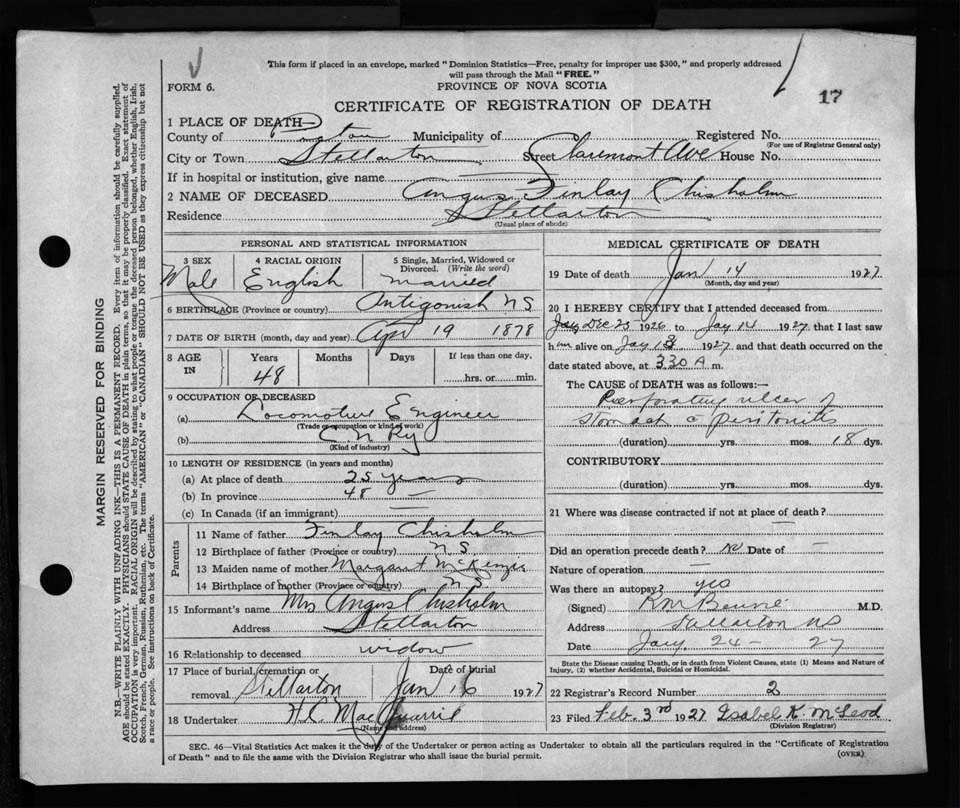 This form if placed in an envelope, marked "Dominion Statistics—Free, penalty for improper use $300," and properly addressed
will pass through the Mail "FREE."
FORM 6.
PROVINCE OF NOVA SCOTIA
CERTIFICATE OF REGISTRATION OF DEATH
17
1 PLACE OF DEATH—
County of Pictou Municipality of Registered No.
(For use of Registrar General only)
City or Town Stellarton Street Claremont Ave House No.
If in hospital or institution, give name
2 NAME OF DECEASED Angus Finlay Chisholm
Residence Stellarton
(Usual place of abode)
PERSONAL AND STATISTICAL INFORMATION
3 SEX 4 RACIAL ORIGIN 5 Single, Married, Widowed or Divorced. (Write the word)
Male English Married
6 BIRTHPLACE (Province or country) Antigonish N S
7 DATE OF BIRTH (month, day and year) Apr 19 1878
8 AGE IN Years Months Days If less than one day,
48 hrs. or min.
9 OCCUPATION OF DECEASED
(a) Locomotive Engineer
(Trade or occupation or kind of work)
(b) C N Ry
(Kind of industry)
10 LENGTH OF RESIDENCE (in years and months)
(a) At place of death 25 years
(b) In province 48 —
(c) In Canada (if an immigrant) —
Parents
11 Name of father Finlay Chisholm
12 Birthplace of father (Province or country) N S
13 Maiden name of mother Margaret McKenzie
14 Birthplace of mother (Province or country) N S
15 Informant's name Mrs Angus Chisholm
Address Stellarton
16 Relationship to deceased widow
17 Place of burial, cremation or removal Stellarton Date of burial Jan 16 1927
18 Undertaker H. C. MacQuarrie
(Name and address)
MEDICAL CERTIFICATE OF DEATH
19 Date of death Jan 14 1927
(Month, day and year)
20 I HEREBY CERTIFY that I attended deceased from
Dec 25 1926 to Jay 14 1927 that I last saw
him alive on Jay 13 1927 and that death occurred on the
date stated above, at 330 A m.
The CAUSE of DEATH was as follows:—
Perforating ulcer of
stomach c peritonitis
(duration) yrs. mos. 18 dys.
CONTRIBUTORY.
(duration) yrs. mos. dys.
21 Where was disease contracted if not at place of death?
—
Did an operation precede death? No Date of —
Nature of operation —
Was there an autopsy? yes
(Signed) M.D.
Address Stellarton NS
Date Jay. 24 — 27
State the Disease causing Death, or in death from Violent Causes, state (1) Means and Nature of
Injury, (2) whether Accidental, Suicidal or Homicidal.
22 Registrar's Record Number 2
23 Filed Feb. 3rd 1927 Isabel K. McLeod
(Division Registrar)
SEC. 46—Vital Statistics Act makes it the duty of the Undertaker or person acting as Undertaker to obtain all the particulars required in the "Certificate of Registration
of Death" and to file the same with the Division Registrar who shall issue the burial permit. (OVER)
MARGIN RESERVED FOR BINDING
N.B.—WRITE PLAINLY WITH UNFADING INK—THIS IS A PERMANENT RECORD. Every item of information should be carefully supplied.
AGE should be stated EXACTLY. PHYSICIANS should STATE CAUSE OF DEATH in plain terms, so that it may be properly classified. Exact statement of
OCCUPATION is very important. RACIAL ORIGIN will be described by stating to what people or tongue the deceased person belonged, whether English, Irish,
Scotch, French, German, Russian, Ruthenian, etc. The terms "AMERICAN" or "CANADIAN" SHOULD NOT BE USED as they express citizenship but not
a race or people. See instructions on back of Certificate.